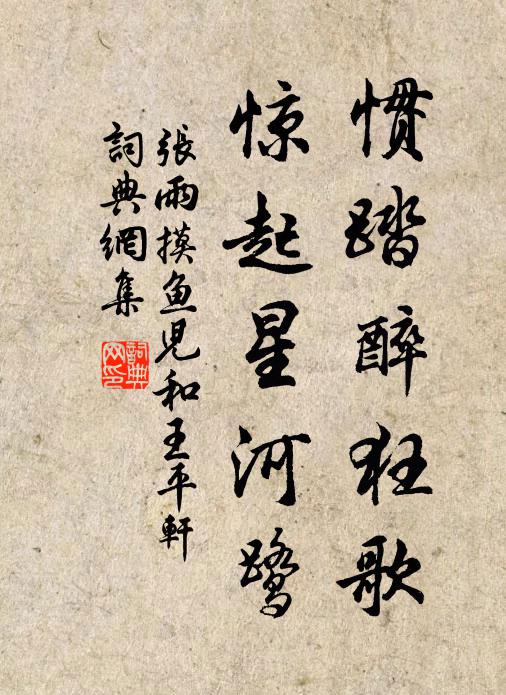 慣踏醉狂歌
惊起星河鷺
張雨摸鱼児和王平軒
詞典網集
詞典
网印